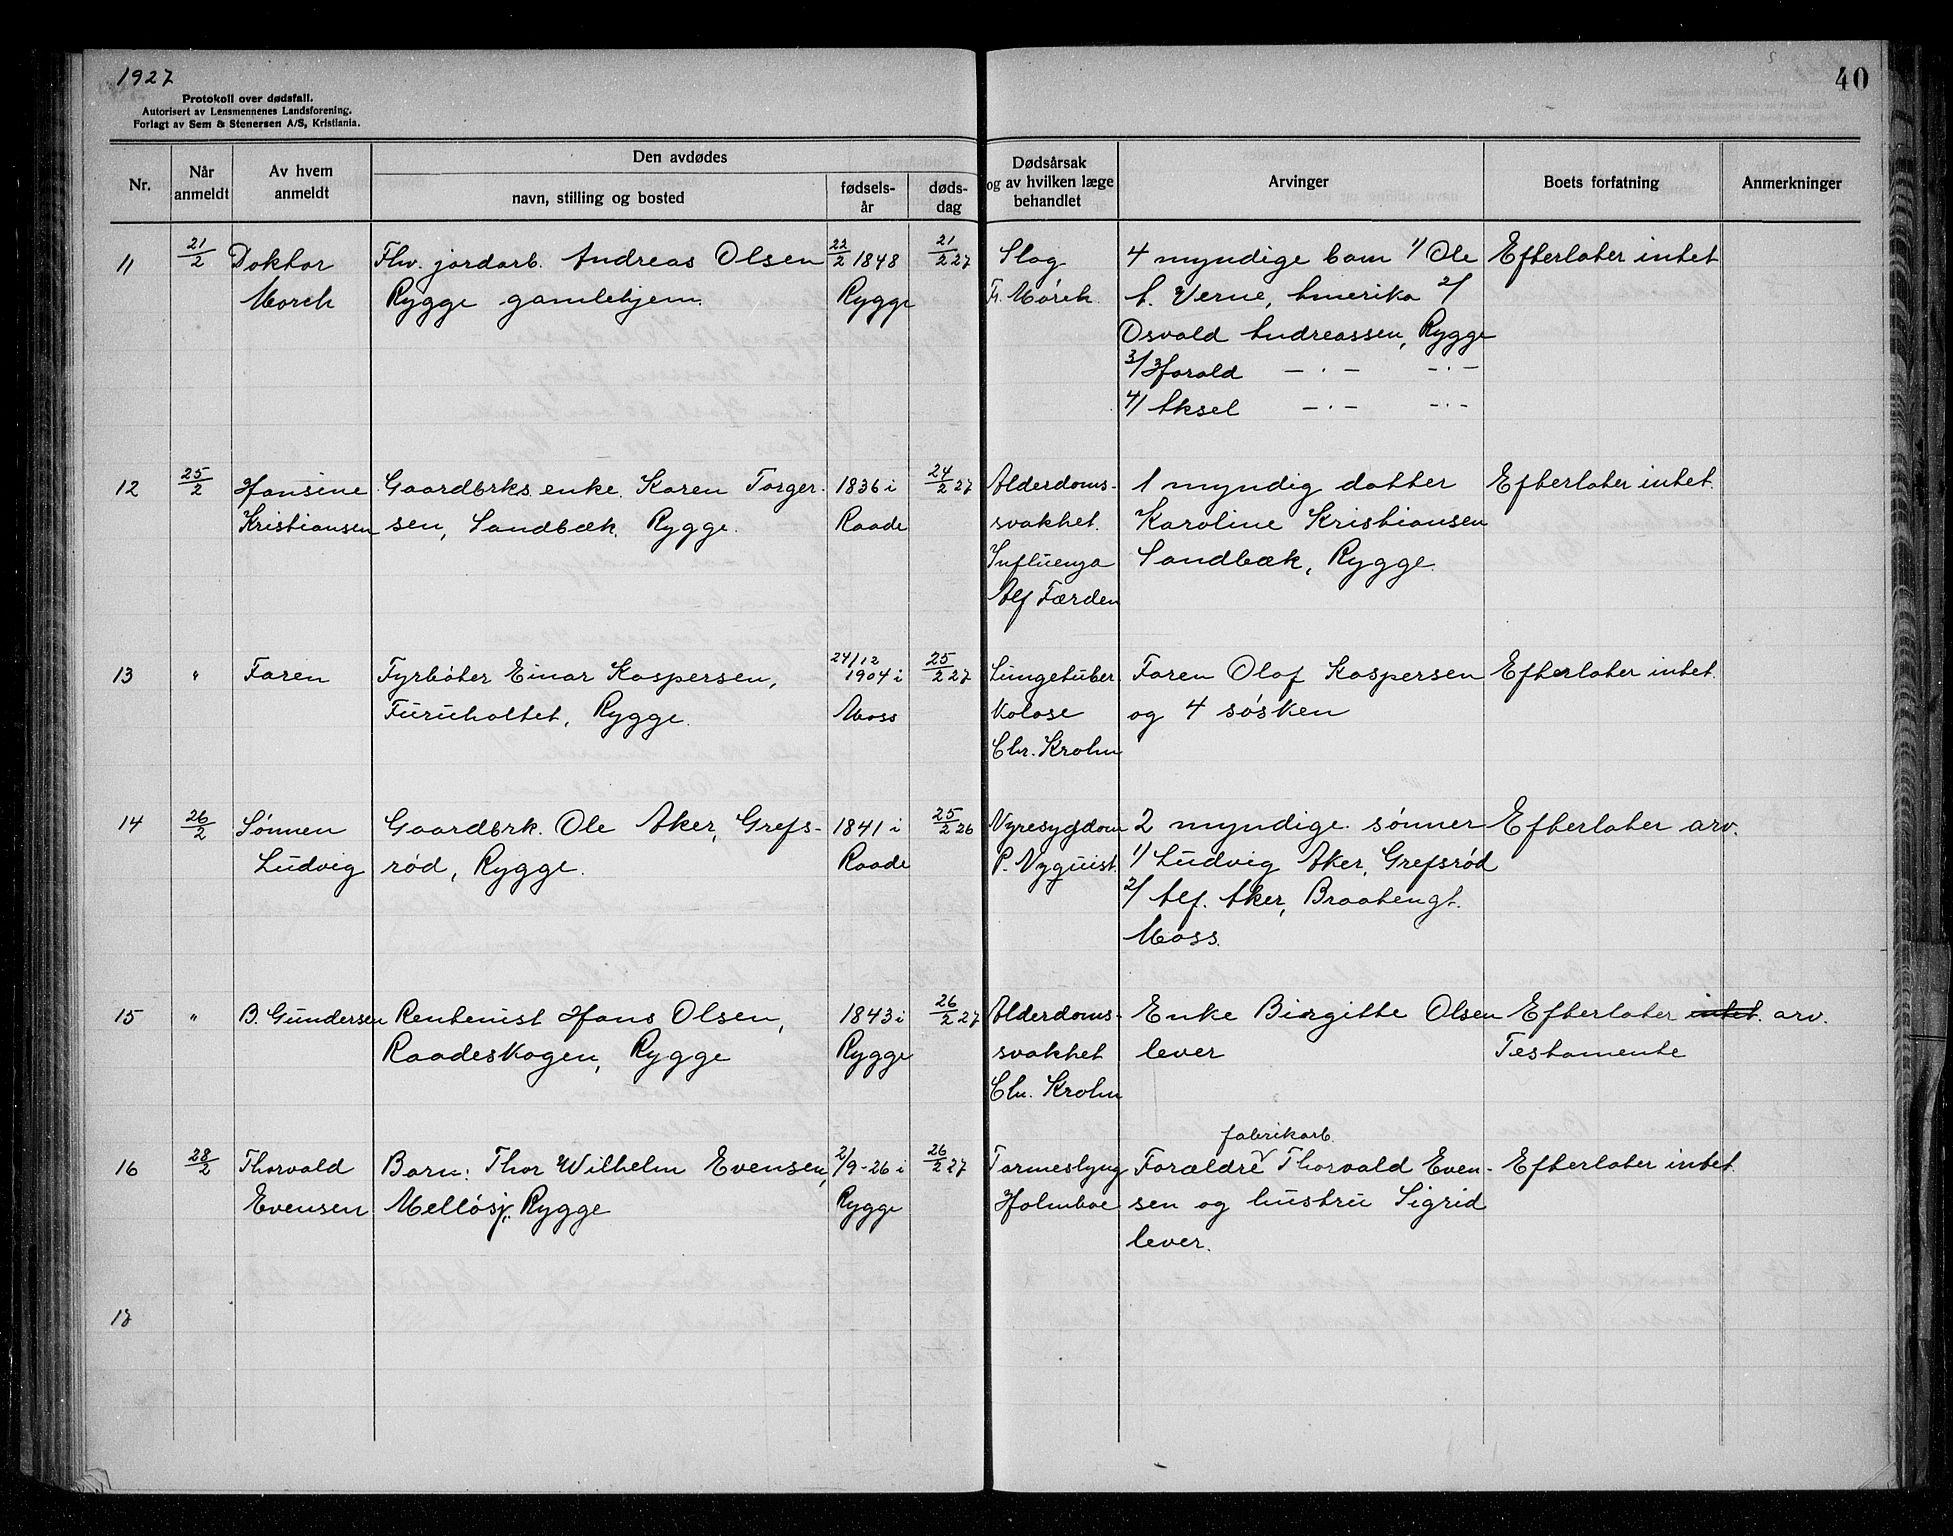 1927
40
Protokoll over dødsfall.
Autorisert av Lensmennenes Landsforening.
Forlagt av Sem & Stenersen A/S, Kristiania.
Nr.
Når anmeldt
Av hvem anmeldt
Den avdødes
navn, stilling og bosted
fødsels-år
døds-dag
Dødsårsak og av hvilken læge behandlet
Arvinger
Boets forfatning
Anmerkninger
11 21/2 Doktor Fhv. jordarb. Andreas Olsen 22/2 1848 21/2 27 Slag 4 myndige barn 1/ Ole Efterlater intet
Mørch Rygge gamlehjem. Rygge Fr. Mørch. A. Verne, Amerika 2/
Osvald Andreassen, Rygge
3/ Harald — . — — . —
4/ Aksel — . — — . —
12 25/2 Hansine Gaardbrks. enke Karen Torger- 1836 i 24/2 27 Alderdoms- 1 myndig datter Efterlater intet.
Kristiansen sen, Sandbæk, Rygge. Raade svakhet. Karoline Kristiansen
Influenza Sandbæk, Rygge.
Alf Færden
13 " Faren Fyrbøter Einar Kaspersen, 24/12 1904 i 25/2 27 Lungetuber- Faren Olaf Kaspersen Efterlater intet.
Furuholtet, Rygge. Moss kolose og 4 søsken
Chr. Krohn
14 26/2 Sønnen Gaardbrk. Ole Aker, Grefs- 1841 i 25/2 26 Nyresygdom 2 myndige sønner Efterlater arv.
Ludvig rød, Rygge. Raade P. Nyquist. 1/ Ludvig Aker, Grefsrød
2/ Alf. Aker, Braatengt.
Moss.
15 " B. Gundersen Rentenist Hans Olsen, 1843 i 26/2 27 Alderdoms- Enke Birgitte Olsen Efterlater intet. arv.
Raadeskogen, Rygge Rygge svakhet lever Testamente
Chr. Krohn
fabrikarb.
16 28/2 Thorvald Barn: Thor Wilhelm Evensen, 2/9-26 i 26/2 27 Tarmeslyng Forældre Thorvald Even- Efterlater intet.
Evensen Melløsj. Rygge Rygge Holmboe sen og hustru Sigrid
lever.
17